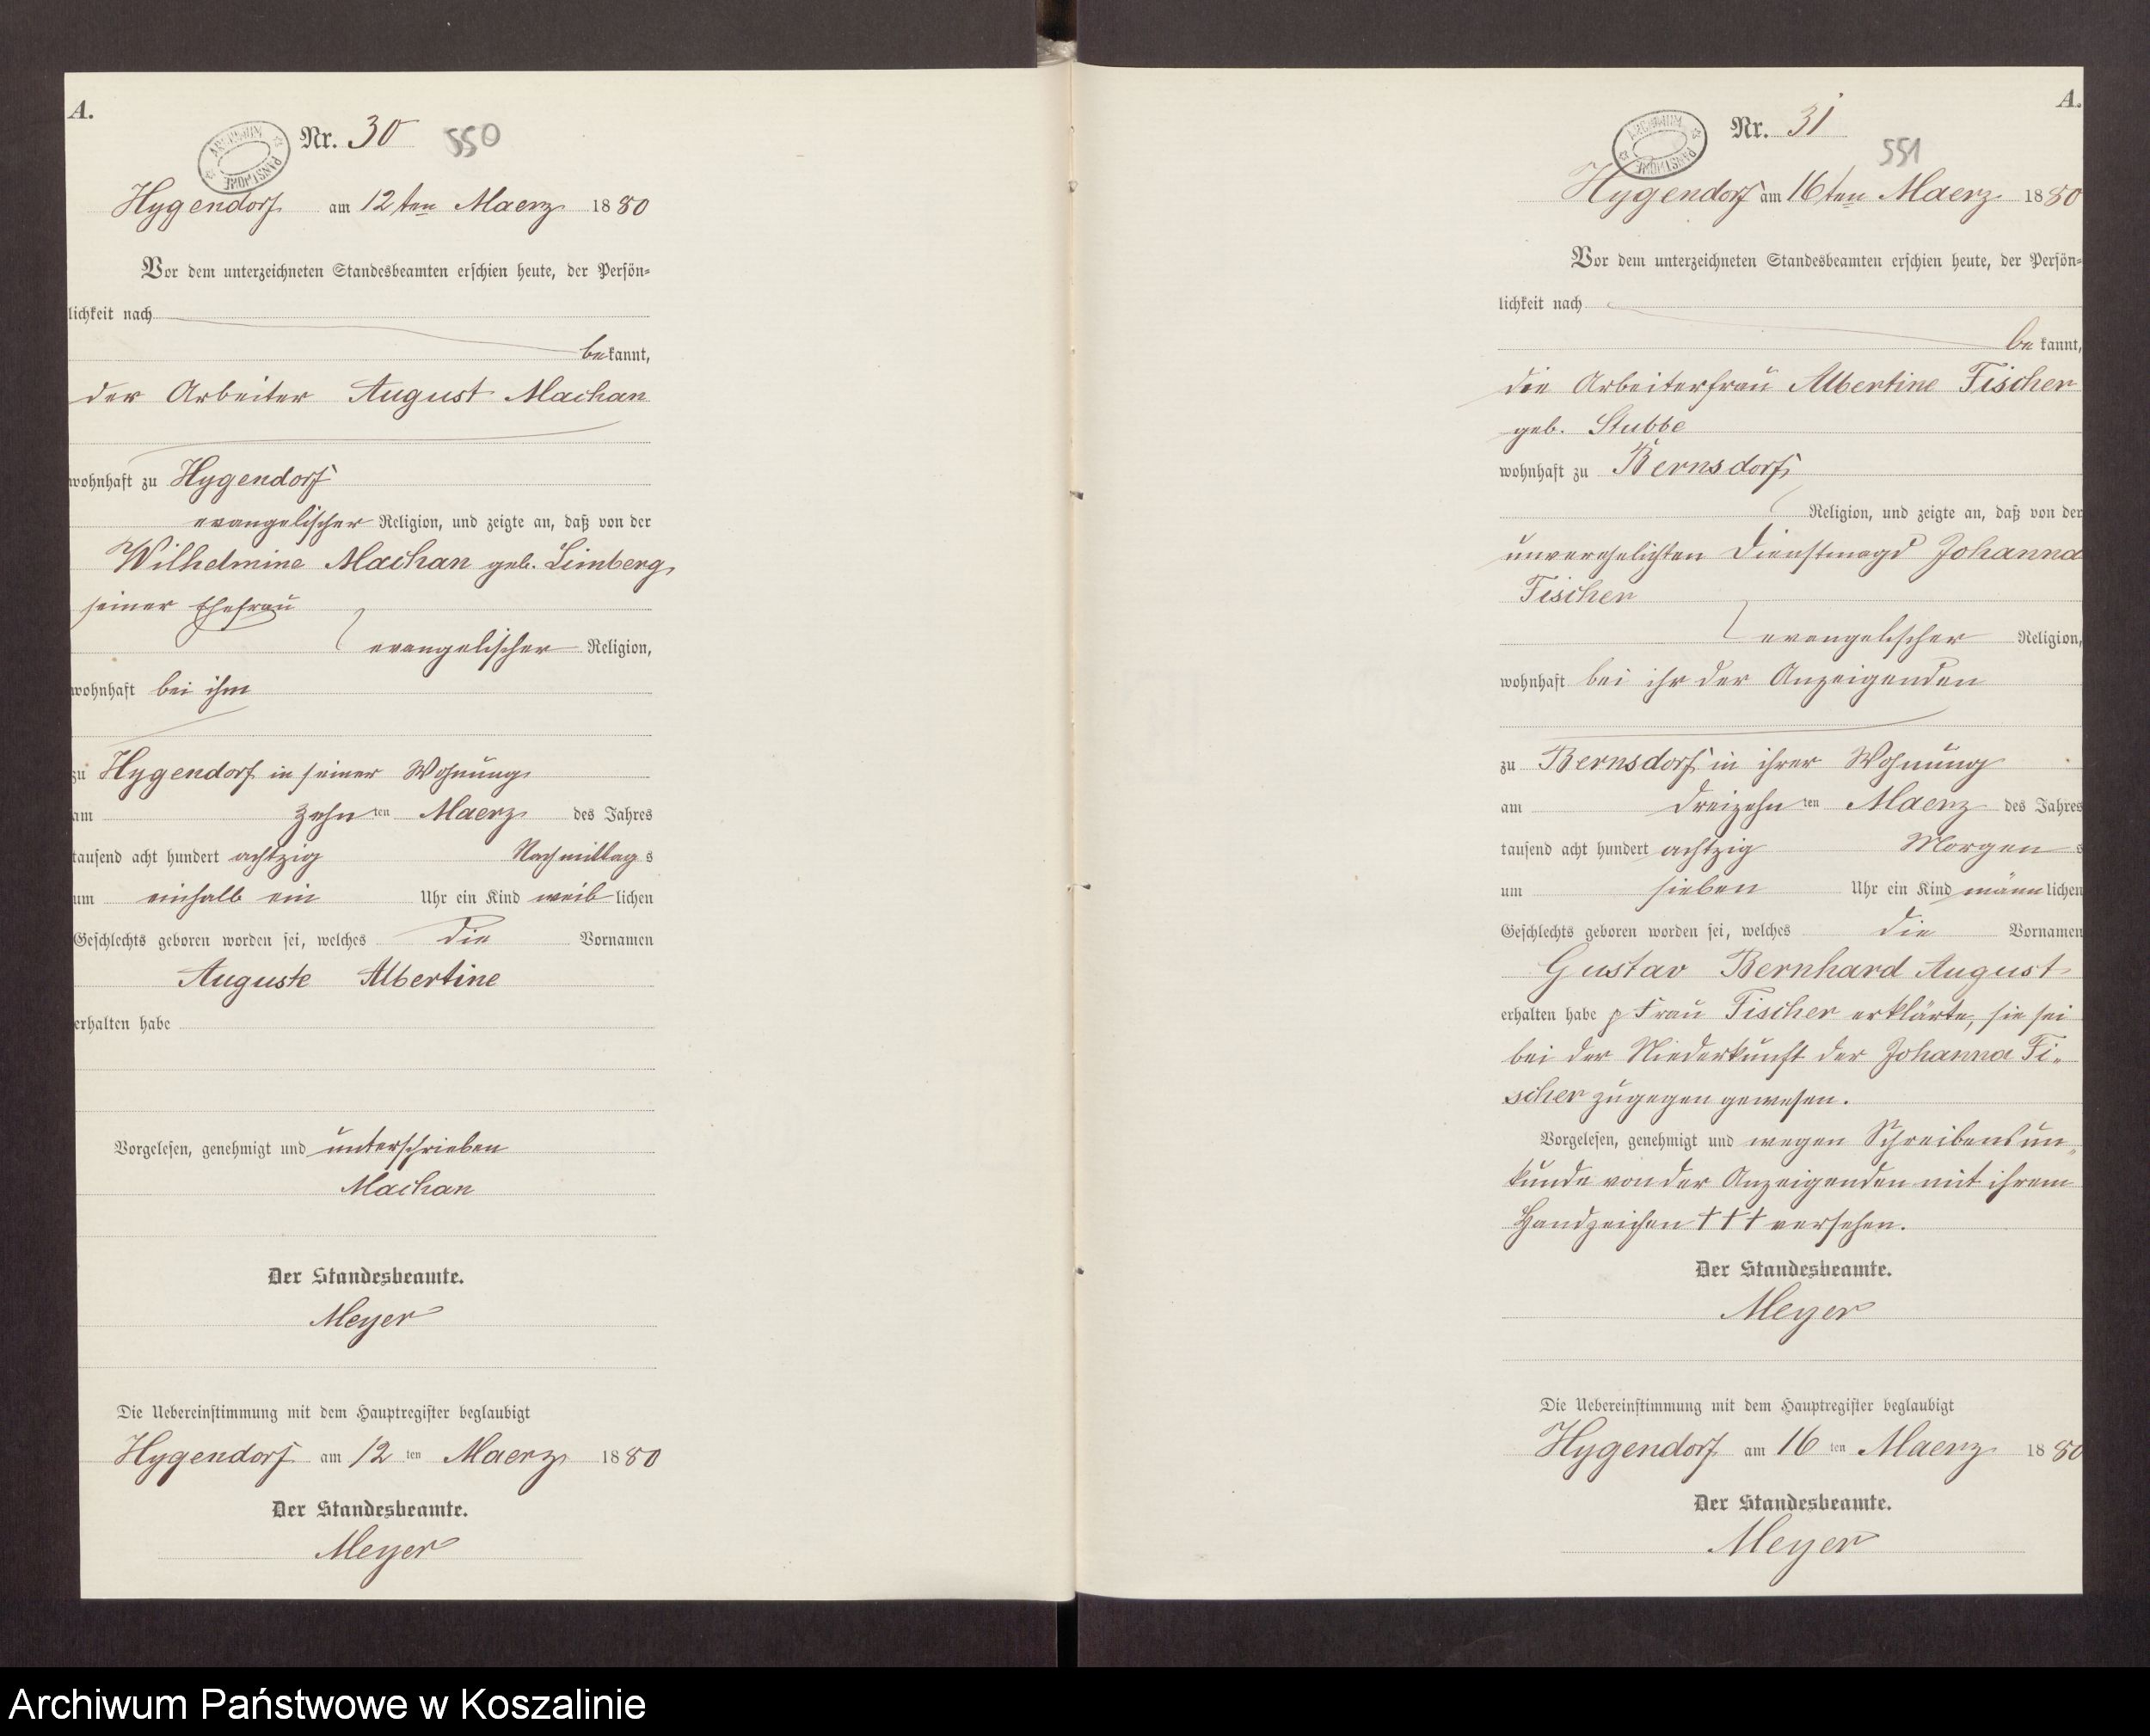 A.
Nr. 30 550
ARCHIWUM PAŃSTWOWE
Hygendorf am 12ten Maerz 1880
Vor dem unterzeichneten Standesbeamten erschien heute, der Persön=
lichkeit nach
bekannt,
der Arbeiter August Machan
wohnhaft zu Hygendorf
evangelischer Religion, und zeigte an, daß von der
Wilhelmine Machan geb. Limberg,
seiner Ehefrau
evangelischer Religion,
wohnhaft bei ihm
zu Hygendorf in seiner Wohnung
am zehn ten Maerz des Jahres
tausend acht hundert achtzig Nachmittag s
um einhalb ein Uhr ein Kind weib lichen
Geschlechts geboren worden sei, welches die Vornamen
Auguste Albertine
erhalten habe
Vorgelesen, genehmigt und unterschrieben
Machan
Der Standesbeamte.
Meyer
Die Uebereinstimmung mit dem Hauptregister beglaubigt
Hygendorf am 12 ten Maerz 1880
Der Standesbeamte.
Meyer
A.
Nr. 31
551
ARCHIWUM PAŃSTWOWE
Hygendorf am 16ten Maerz 1880
Vor dem unterzeichneten Standesbeamten erschien heute, der Persön=
lichkeit nach
be kannt,
die Arbeiterfrau Albertine Fischer
geb. Stubbe
wohnhaft zu Bernsdorf
Religion, und zeigte an, daß von der
unverehelichten Dienstmagd Johanna
Fischer
evangelischer Religion,
wohnhaft bei ihr der Anzeigenden
zu Bernsdorf in ihrer Wohnung
am dreizehn ten Maerz des Jahres
tausend acht hundert achtzig Morgen s
um sieben Uhr ein Kind männ lichen
Geschlechts geboren worden sei, welches die Vornamen
Gustav Bernhard August
erhalten habe p Frau Fischer erklärte, sie sei
bei der Niederkunft der Johanna Fi=
scher zugegen gewesen.
Vorgelesen, genehmigt und wegen Schreibensun=
kunde von der Anzeigenden mit ihrem
Handzeichen ††† versehen.
Der Standesbeamte.
Meyer
Die Uebereinstimmung mit dem Hauptregister beglaubigt
Hygendorf am 16 ten Maerz 1880
Der Standesbeamte.
Meyer
Archiwum Państwowe w Koszalinie